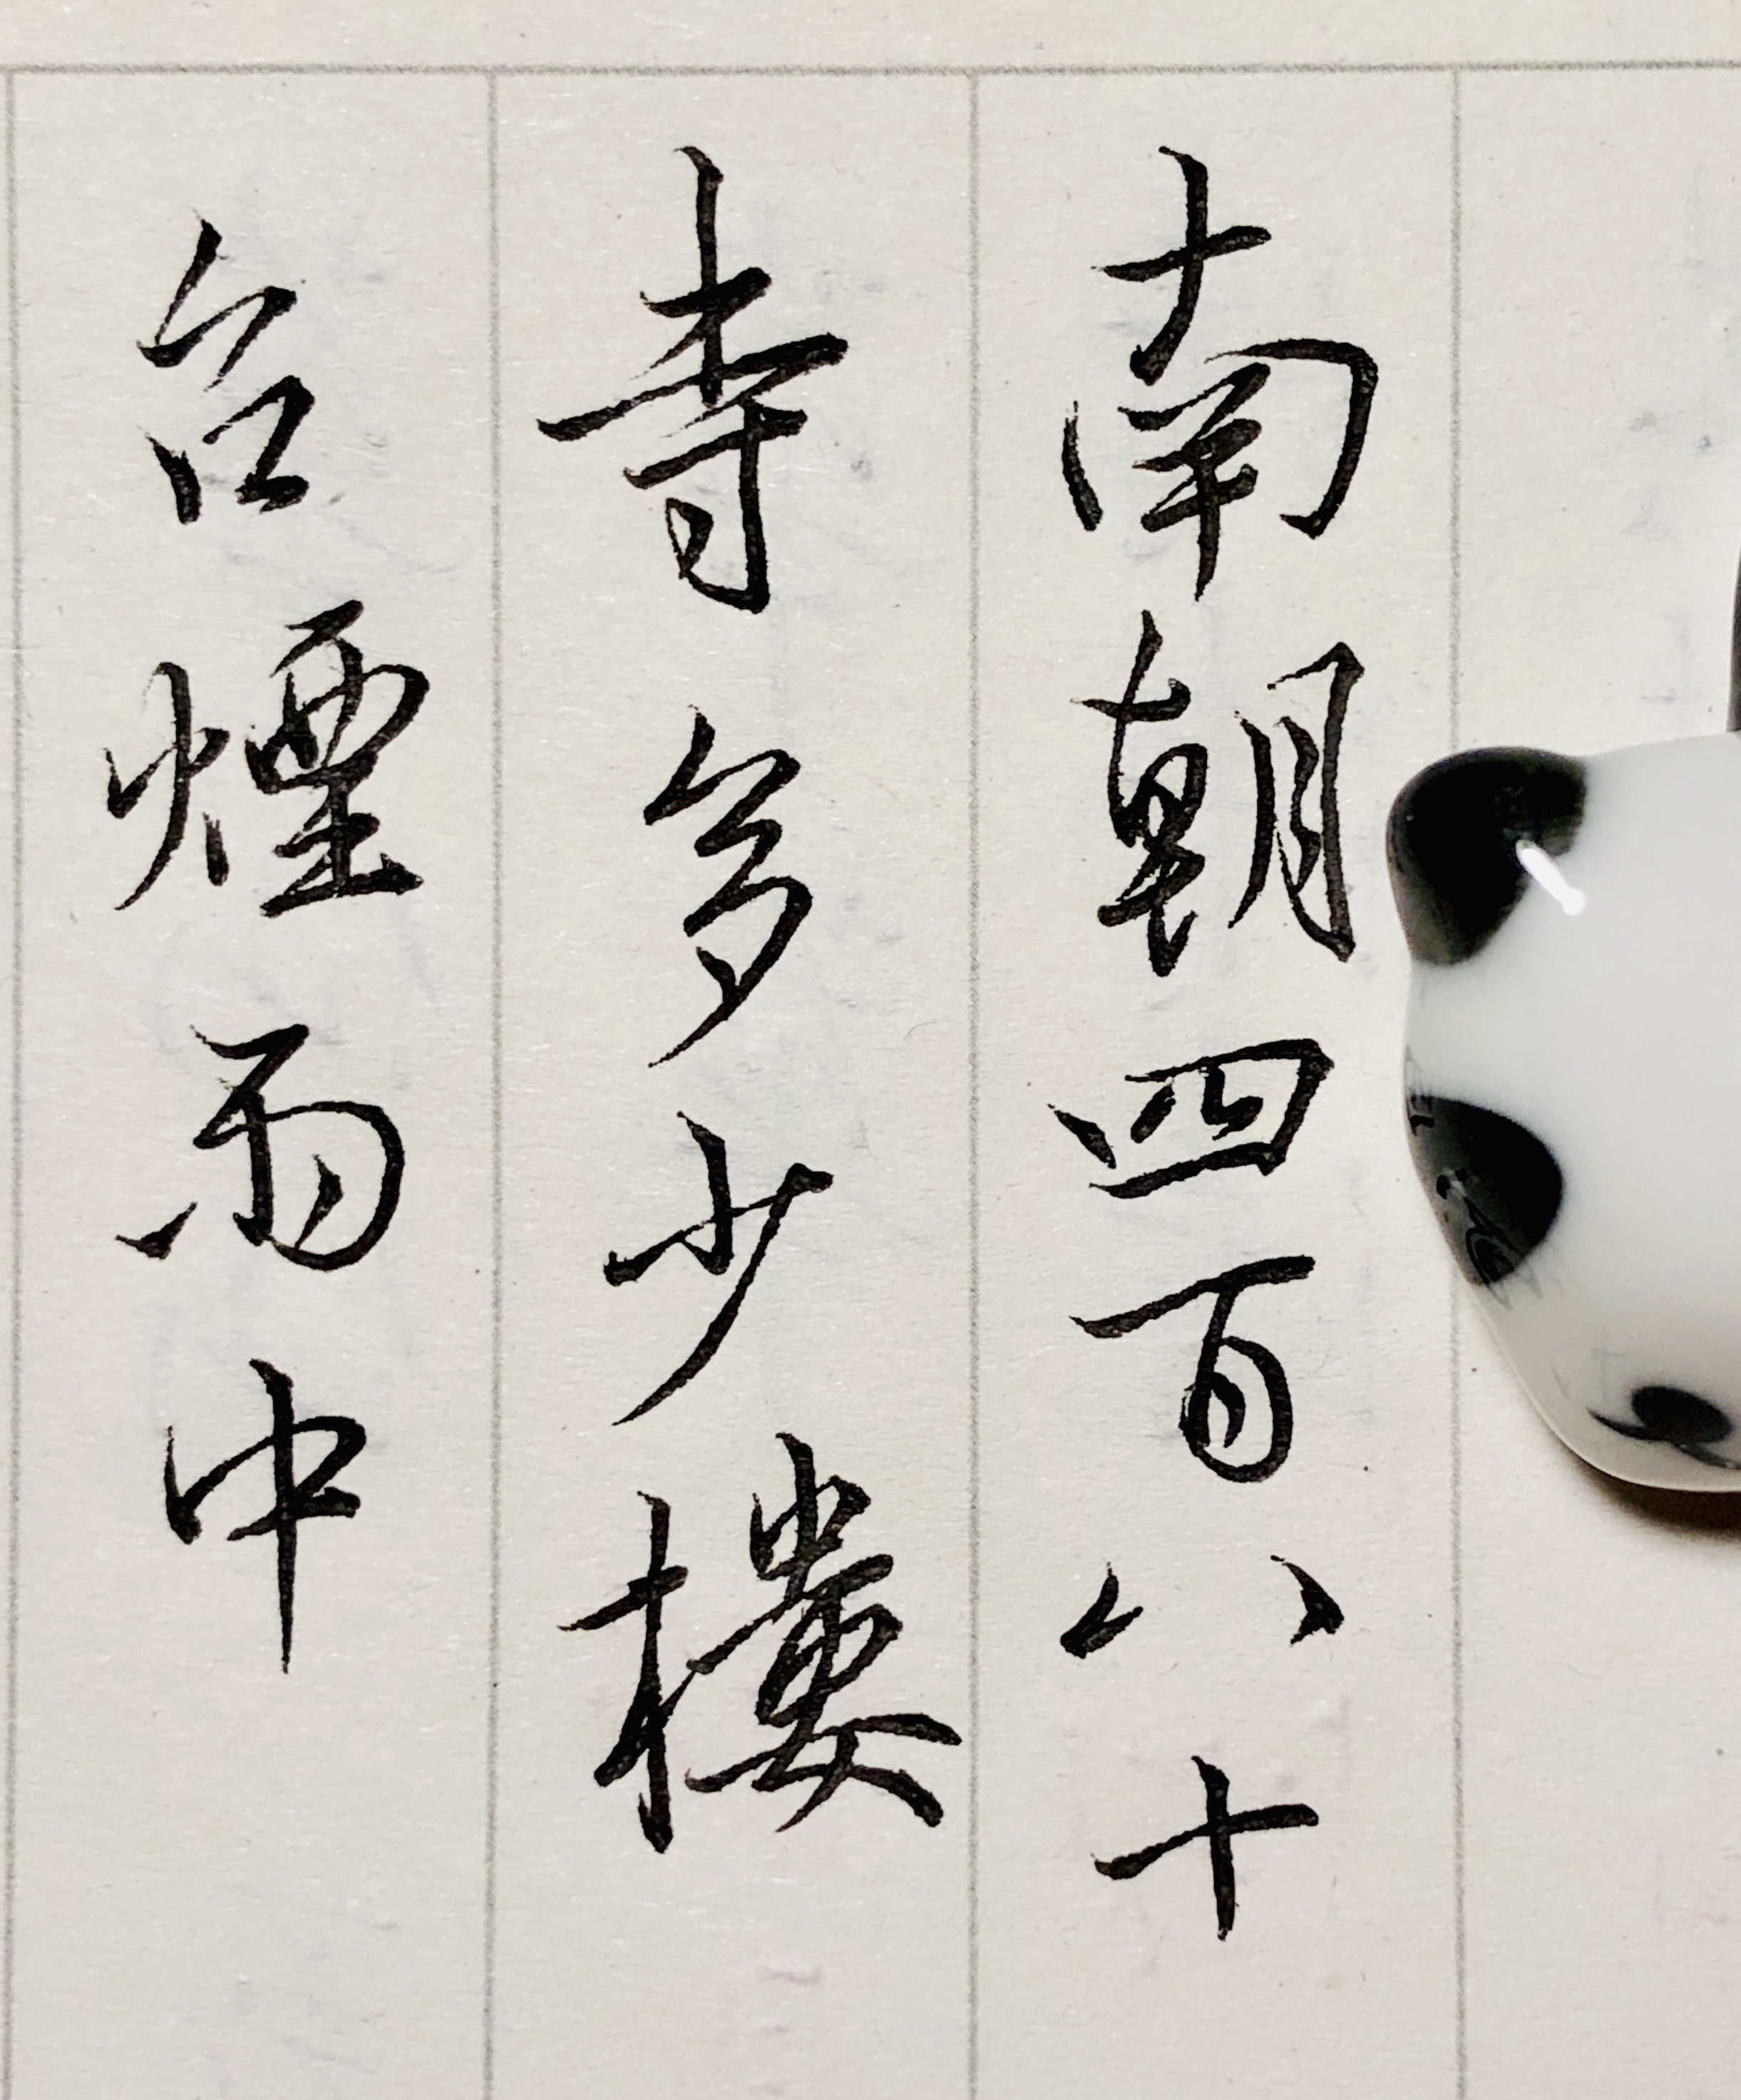 南朝四百八十
寺多少樓
台煙雨中